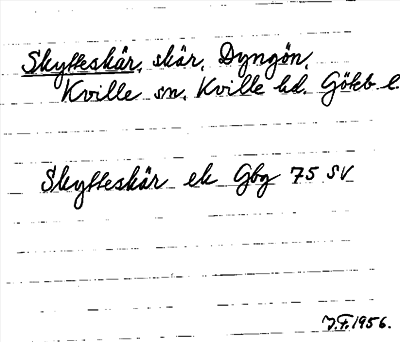 Skytteskär, skär, Dyngön,
Kville sn. Kville hd. Götkb l.
Skytteskär ek Gbg 75 SV
J.F. 1956.